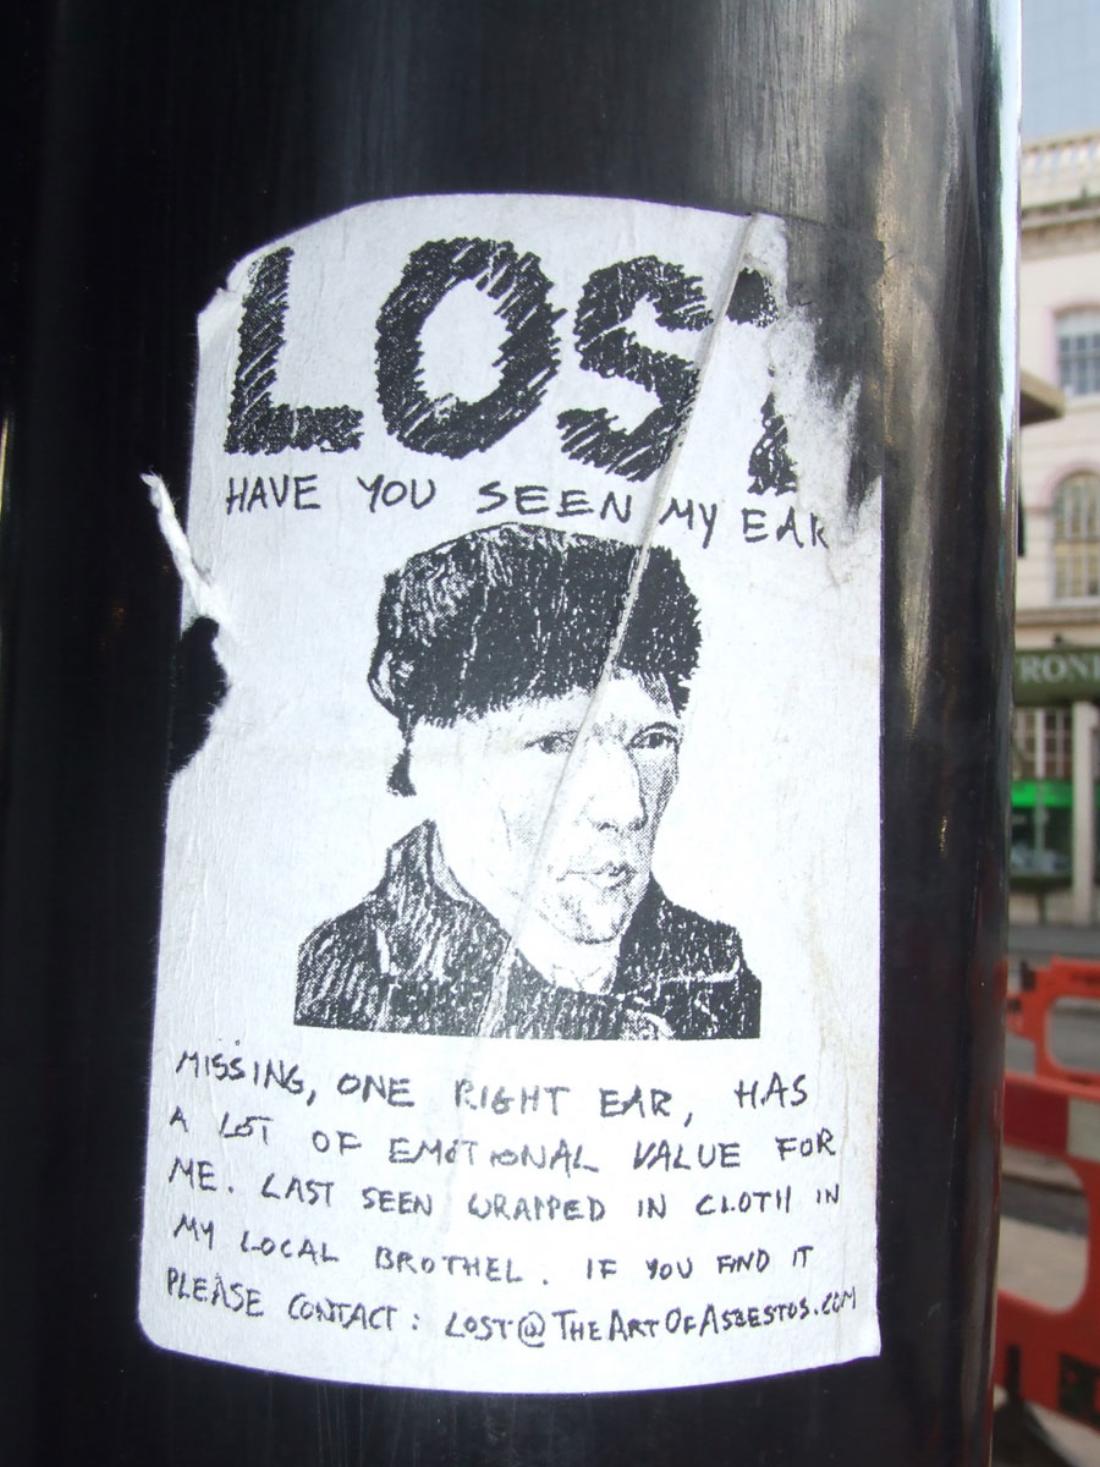 LOST
HAVE YOU SEEN MY EAR
MISSING, ONE RIGHT EAR, HAS
A LOT OF EMOTIONAL VALUE FOR
ME. LAST SEEN WRAPPED IN CLOTH IN
MY LOCAL BROTHEL. IF YOU FIND IT
PLEASE CONTACT: LOST@THEARTOFASBESTOS.COM